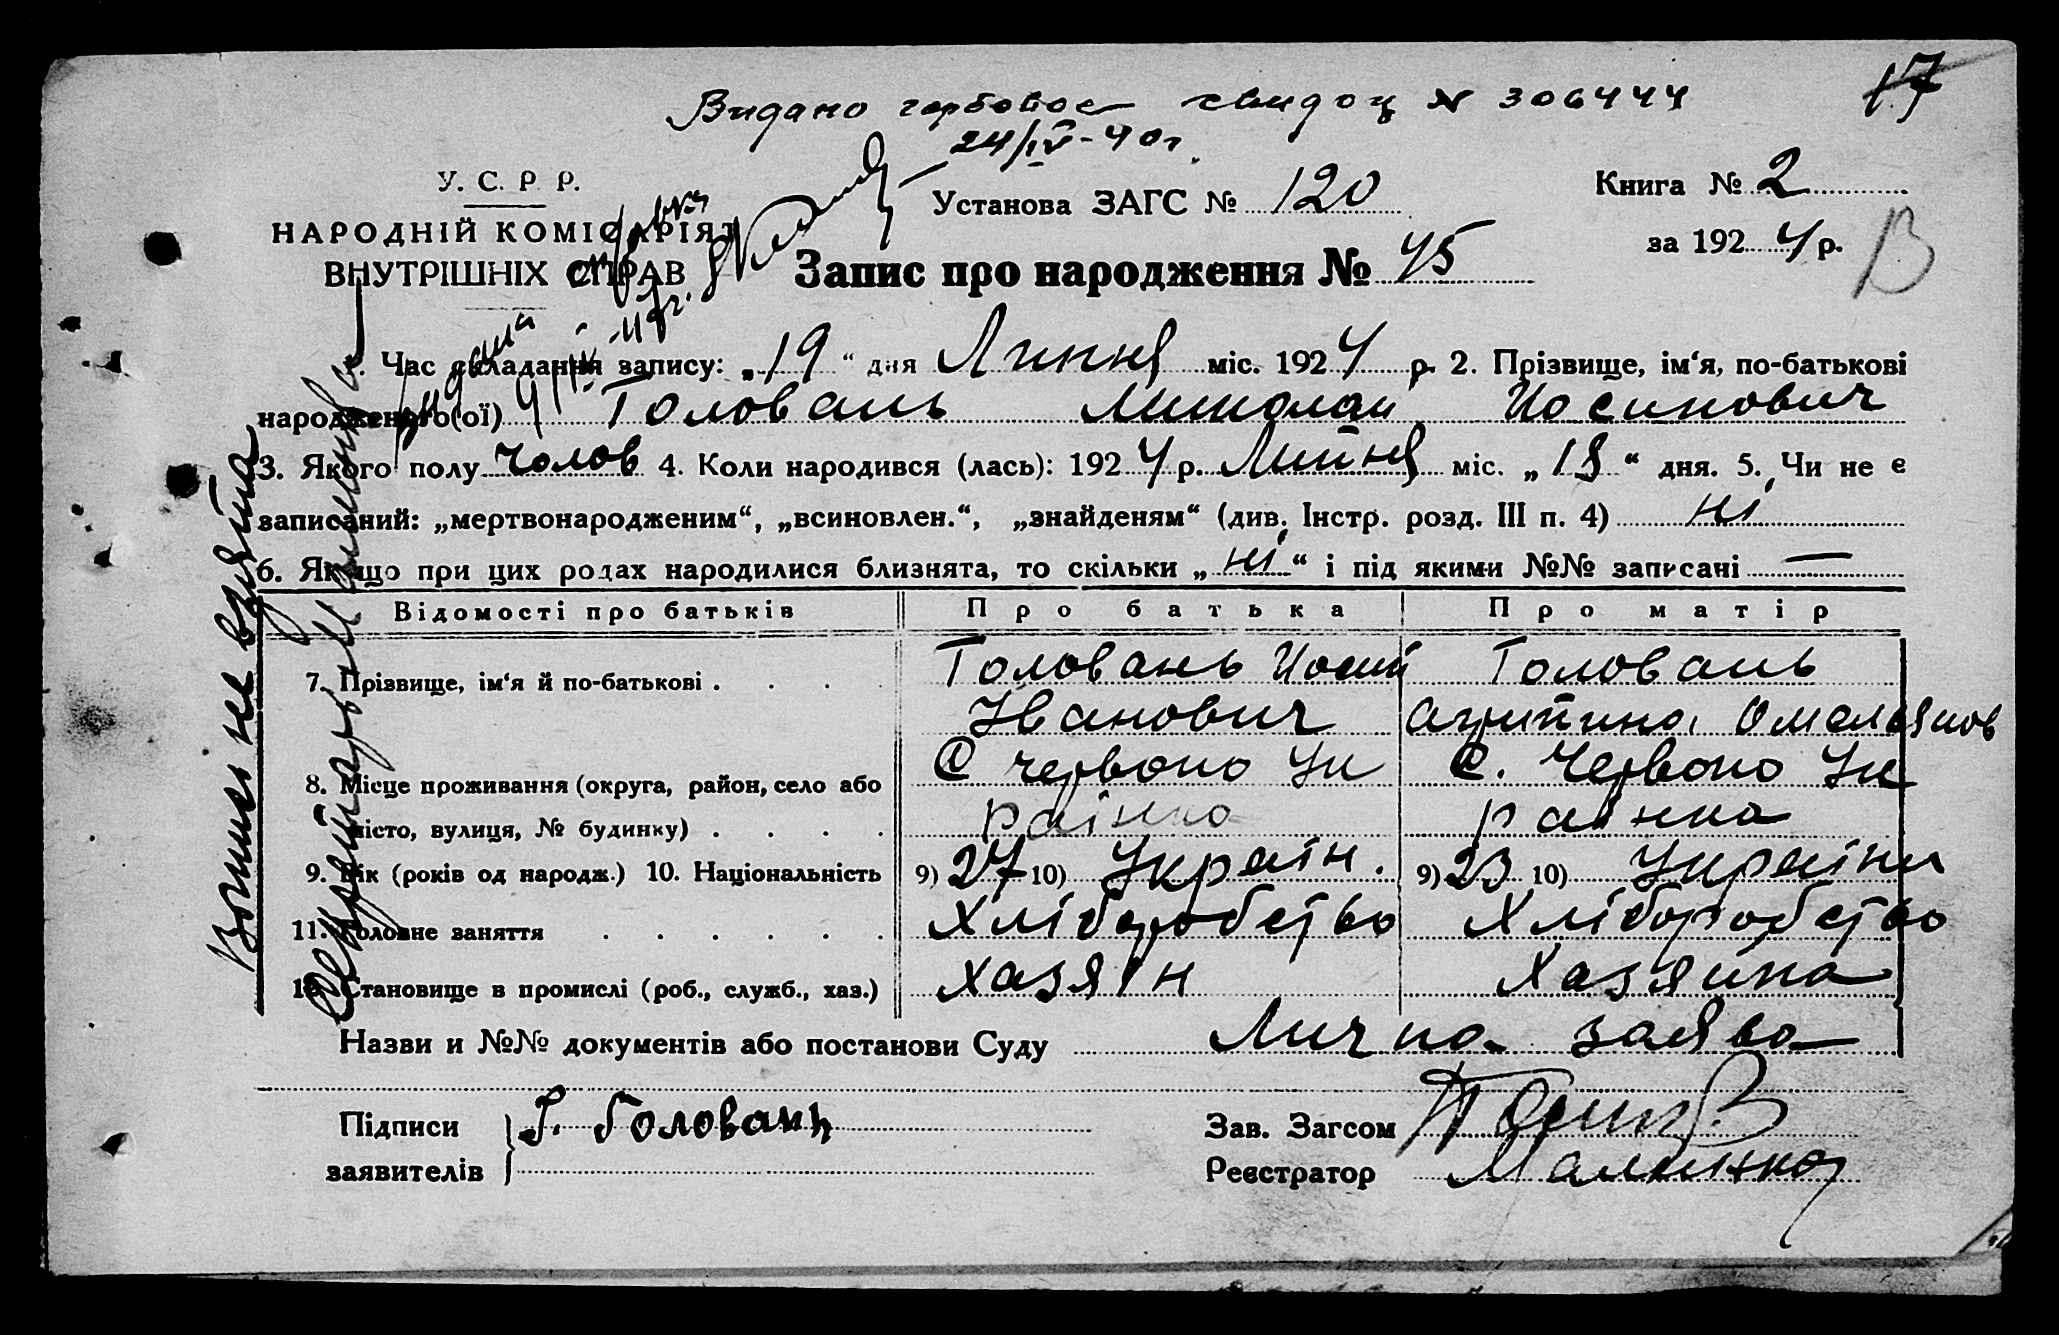 17
Видано гербовое свидоц № 306444
24/IV-40 г.
У. С. Р. Р.
НАРОДНІЙ КОМІСАРІЯТ
ВНУТРІШНІХ СПРАВ
Установа ЗАГС № 120
Книга № 2
за 1924 р.
В
Запис про народження № 45
1. Час складання запису: „19“ дня Липня міс. 1924 р. 2. Прізвище, ім‘я, по-батькові
народженого(ої) Головань Миколай Иосипович
3. Якого полу чолов 4. Коли народився (лась): 1924 р. Липня міс. „18“ дня. 5. Чи не є
записаний: „мертвонародженим“, „всиновлен.“, „знайденям“ (див. Інстр. розд. III п. 4) ні
6. Якщо при цих родах народилися близнята, то скільки „ні“ і під якими №№ записані —
Відомості про батьків Про батька Про матір
7. Прізвище, ім‘я й по-батькові Головань Иосип Головань
Іванович Агрипина Омельянов
8. Місце проживання (округа, район, село або С Червоно Ук С. Червоно Ук
місто, вулиця, № будинку) раінка раінка
9. Вік (років од народж.) 10. Національність 9) 27 10) Україн. 9) 23 10) Україн
11. Головне заняття Хліборобство Хліборобство
12. Становище в промислі (роб., служб., хаз.) хазяін Хазяина
Назви и №№ документів або постанови Суду Лична заява
Підписи Головань
заявителів
Зав. Загсом
Реєстратор